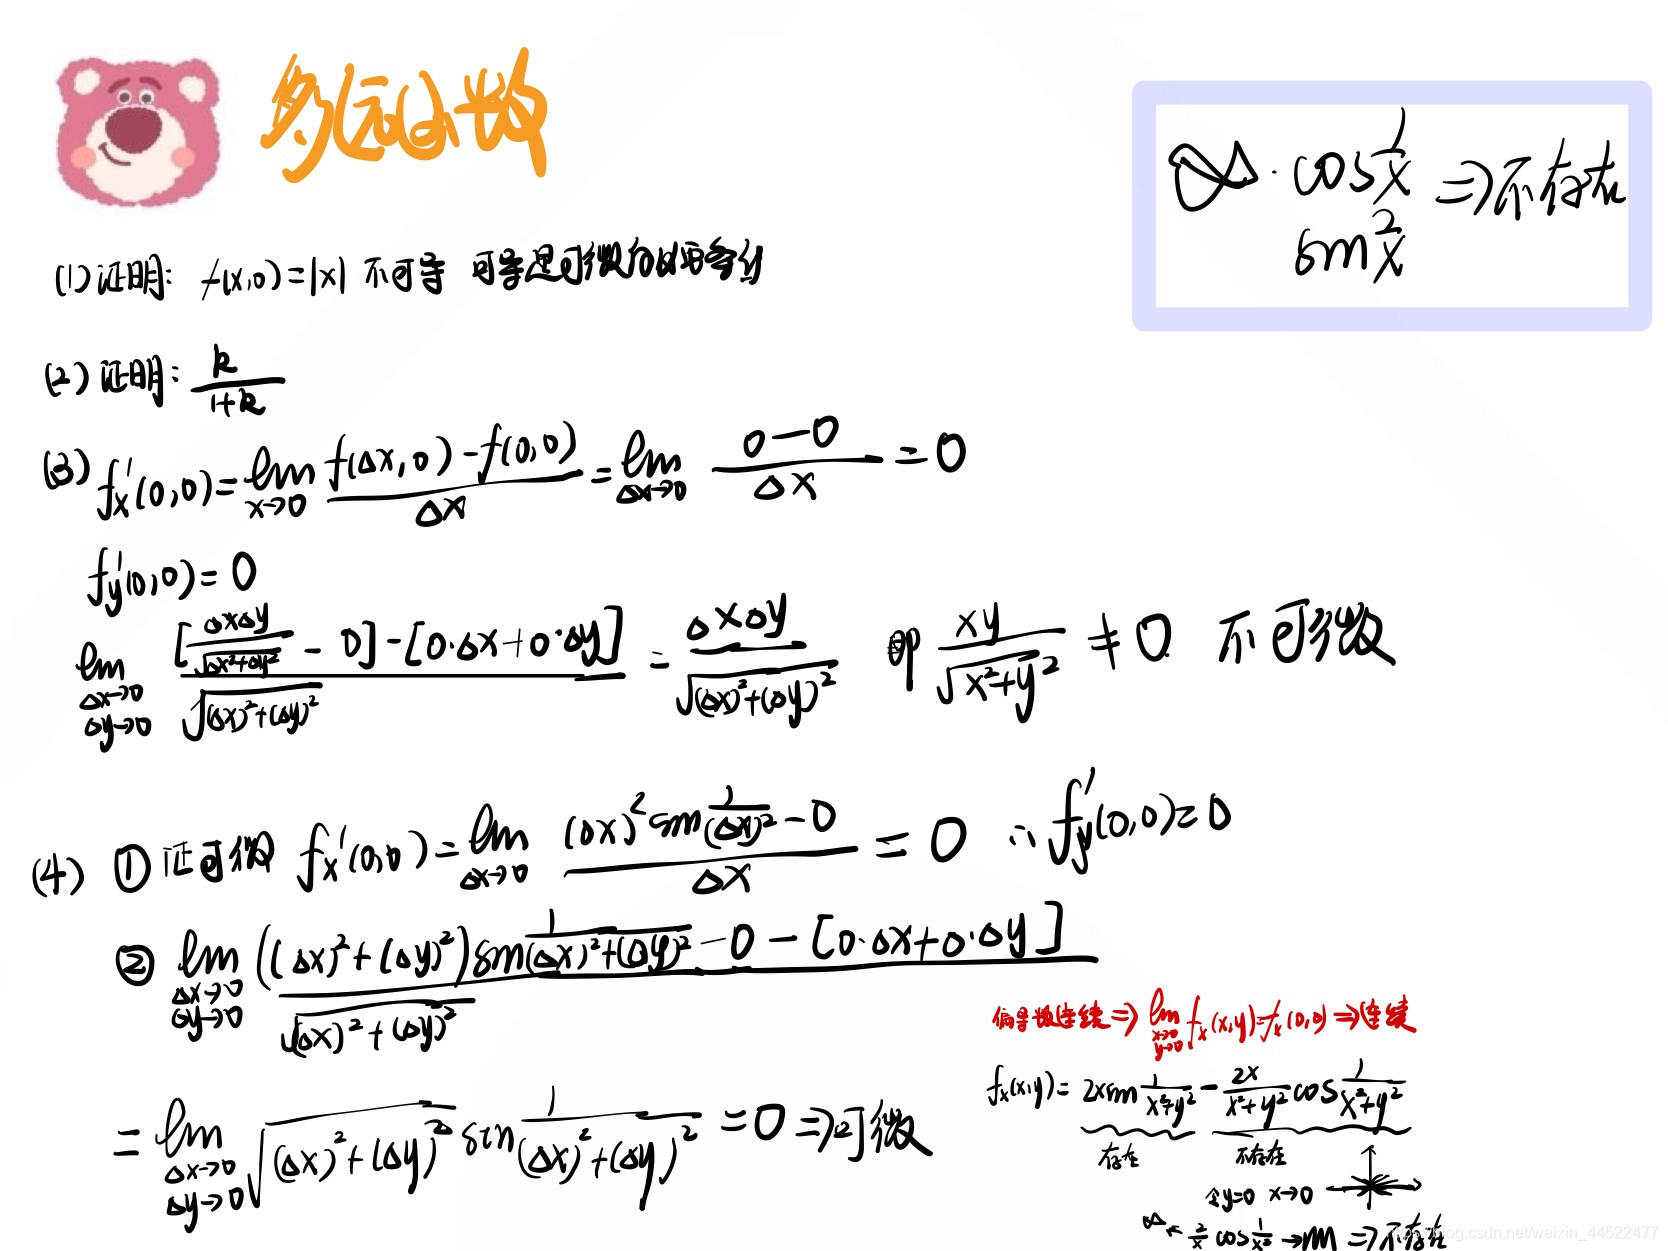 多元函数
∞·cos\frac{1}{x} ⇒不存在
sin\frac{2}{x}
(1)证明: f(x,0)=|x| 不可导 可导是可微的必要条件
(2)证明: \frac{k}{1+k}
(3) f'_x(0,0)=\lim_{x→0}\frac{f(Δx,0)-f(0,0)}{Δx}=\lim_{Δx→0}\frac{0-0}{Δx}=0
f'_y(0,0)=0
\lim_{Δx→0 Δy→0}\frac{[\frac{ΔxΔy}{\sqrt{Δx^2+Δy^2}}-0]-[0·Δx+0·Δy]}{\sqrt{(Δx)^2+(Δy)^2}}=\frac{ΔxΔy}{\sqrt{(Δx)^2+(Δy)^2}} 即 \frac{xy}{\sqrt{x^2+y^2}}≠0 不可微
(4) ①证可微 f'_x(0,0)=\lim_{Δx→0}\frac{(Δx)^2 sin\frac{1}{(Δx)^2}-0}{Δx}=0 ∴f'_y(0,0)=0
② \lim_{Δx→0 Δy→0}\frac{((Δx)^2+(Δy)^2)sin\frac{1}{(Δx)^2+(Δy)^2}-0-[0·Δx+0·Δy]}{\sqrt{(Δx)^2+(Δy)^2}}
=\lim_{Δx→0 Δy→0}\sqrt{(Δx)^2+(Δy)^2} sin\frac{1}{(Δx)^2+(Δy)^2}=0⇒可微
偏导数连续⇒\lim_{x→0 y→0}f_x(x,y)=f_x(0,0)⇒连续
f_x(x,y)=2xsin\frac{1}{x^2+y^2}-\frac{2x}{x^2+y^2}cos\frac{1}{x^2+y^2}
存在 不存在
令y=0 x→0
∞← \frac{2}{x}cos\frac{1}{x^2}→ ⇒不存在
https://blog.csdn.net/weixin_44522477